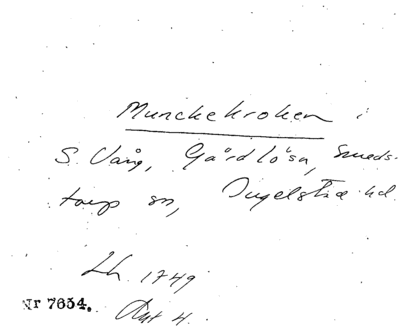 Munckekroken i
S. Vång, Gårdlösa, Smeds-
torp sn, Ingelsta hd
Lh. 1749
Nr 7654. Akt 4.